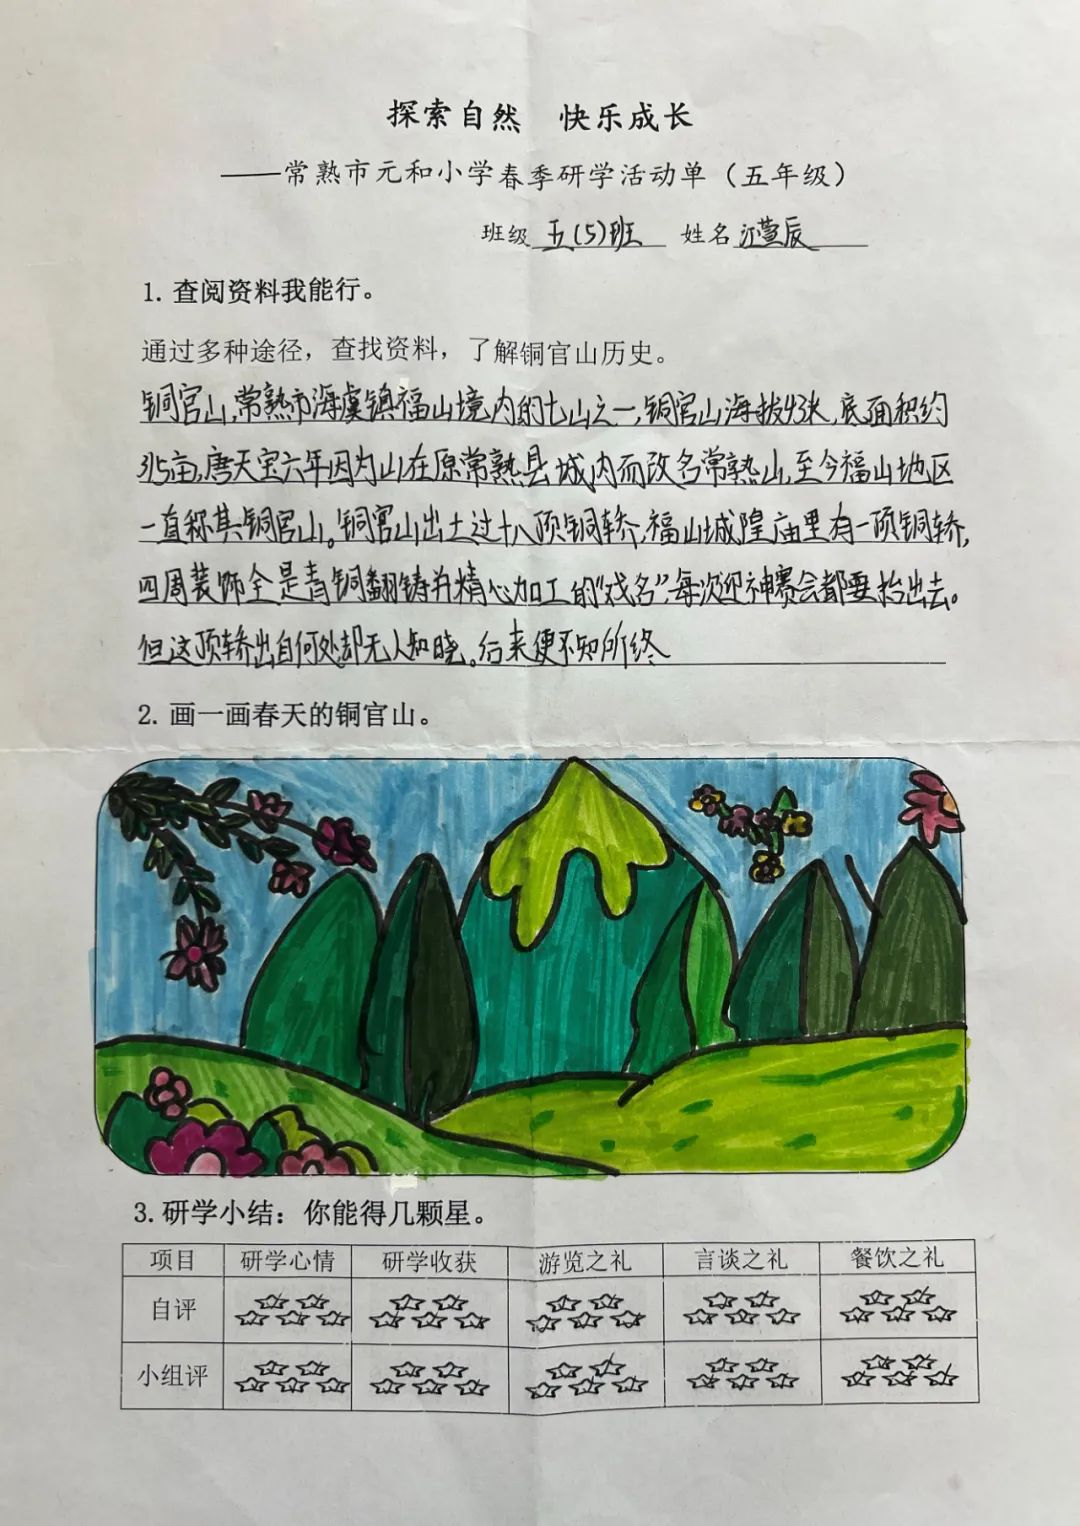 探索自然 快乐成长
——常熟市元和小学春季研学活动单（五年级）
班级 五(5)班 姓名 江萱辰
1. 查阅资料我能行。
通过多种途径，查找资料，了解铜官山历史。
铜官山,常熟市海虞镇福山境内的七山之一,铜官山海拔43米,底面积约
315亩,唐天宝六年因为山在原常熟县城内而改名常熟山,至今福山地区
一直称其铜官山。铜官山出土过十八顶铜轿,福山城隍庙里有一顶铜轿,
四周装饰全是青铜翻铸并精心加工的“戏名”,每次迎神赛会都要抬出去。
但这顶轿出自何处却无人知晓。后来便不知所终
2. 画一画春天的铜官山。
3. 研学小结：你能得几颗星。
项目 研学心情 研学收获 游览之礼 言谈之礼 餐饮之礼
自评
小组评